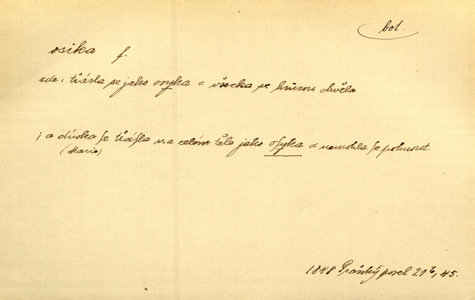 bot.
osika f.
zde: třásla se jako osyka = všecka se hrůzou chvěla
; a dívka se třásla na celém těle jako osyka a nemohla se pohnout.
(Marie)
1848 Pražský posel 21, 45.